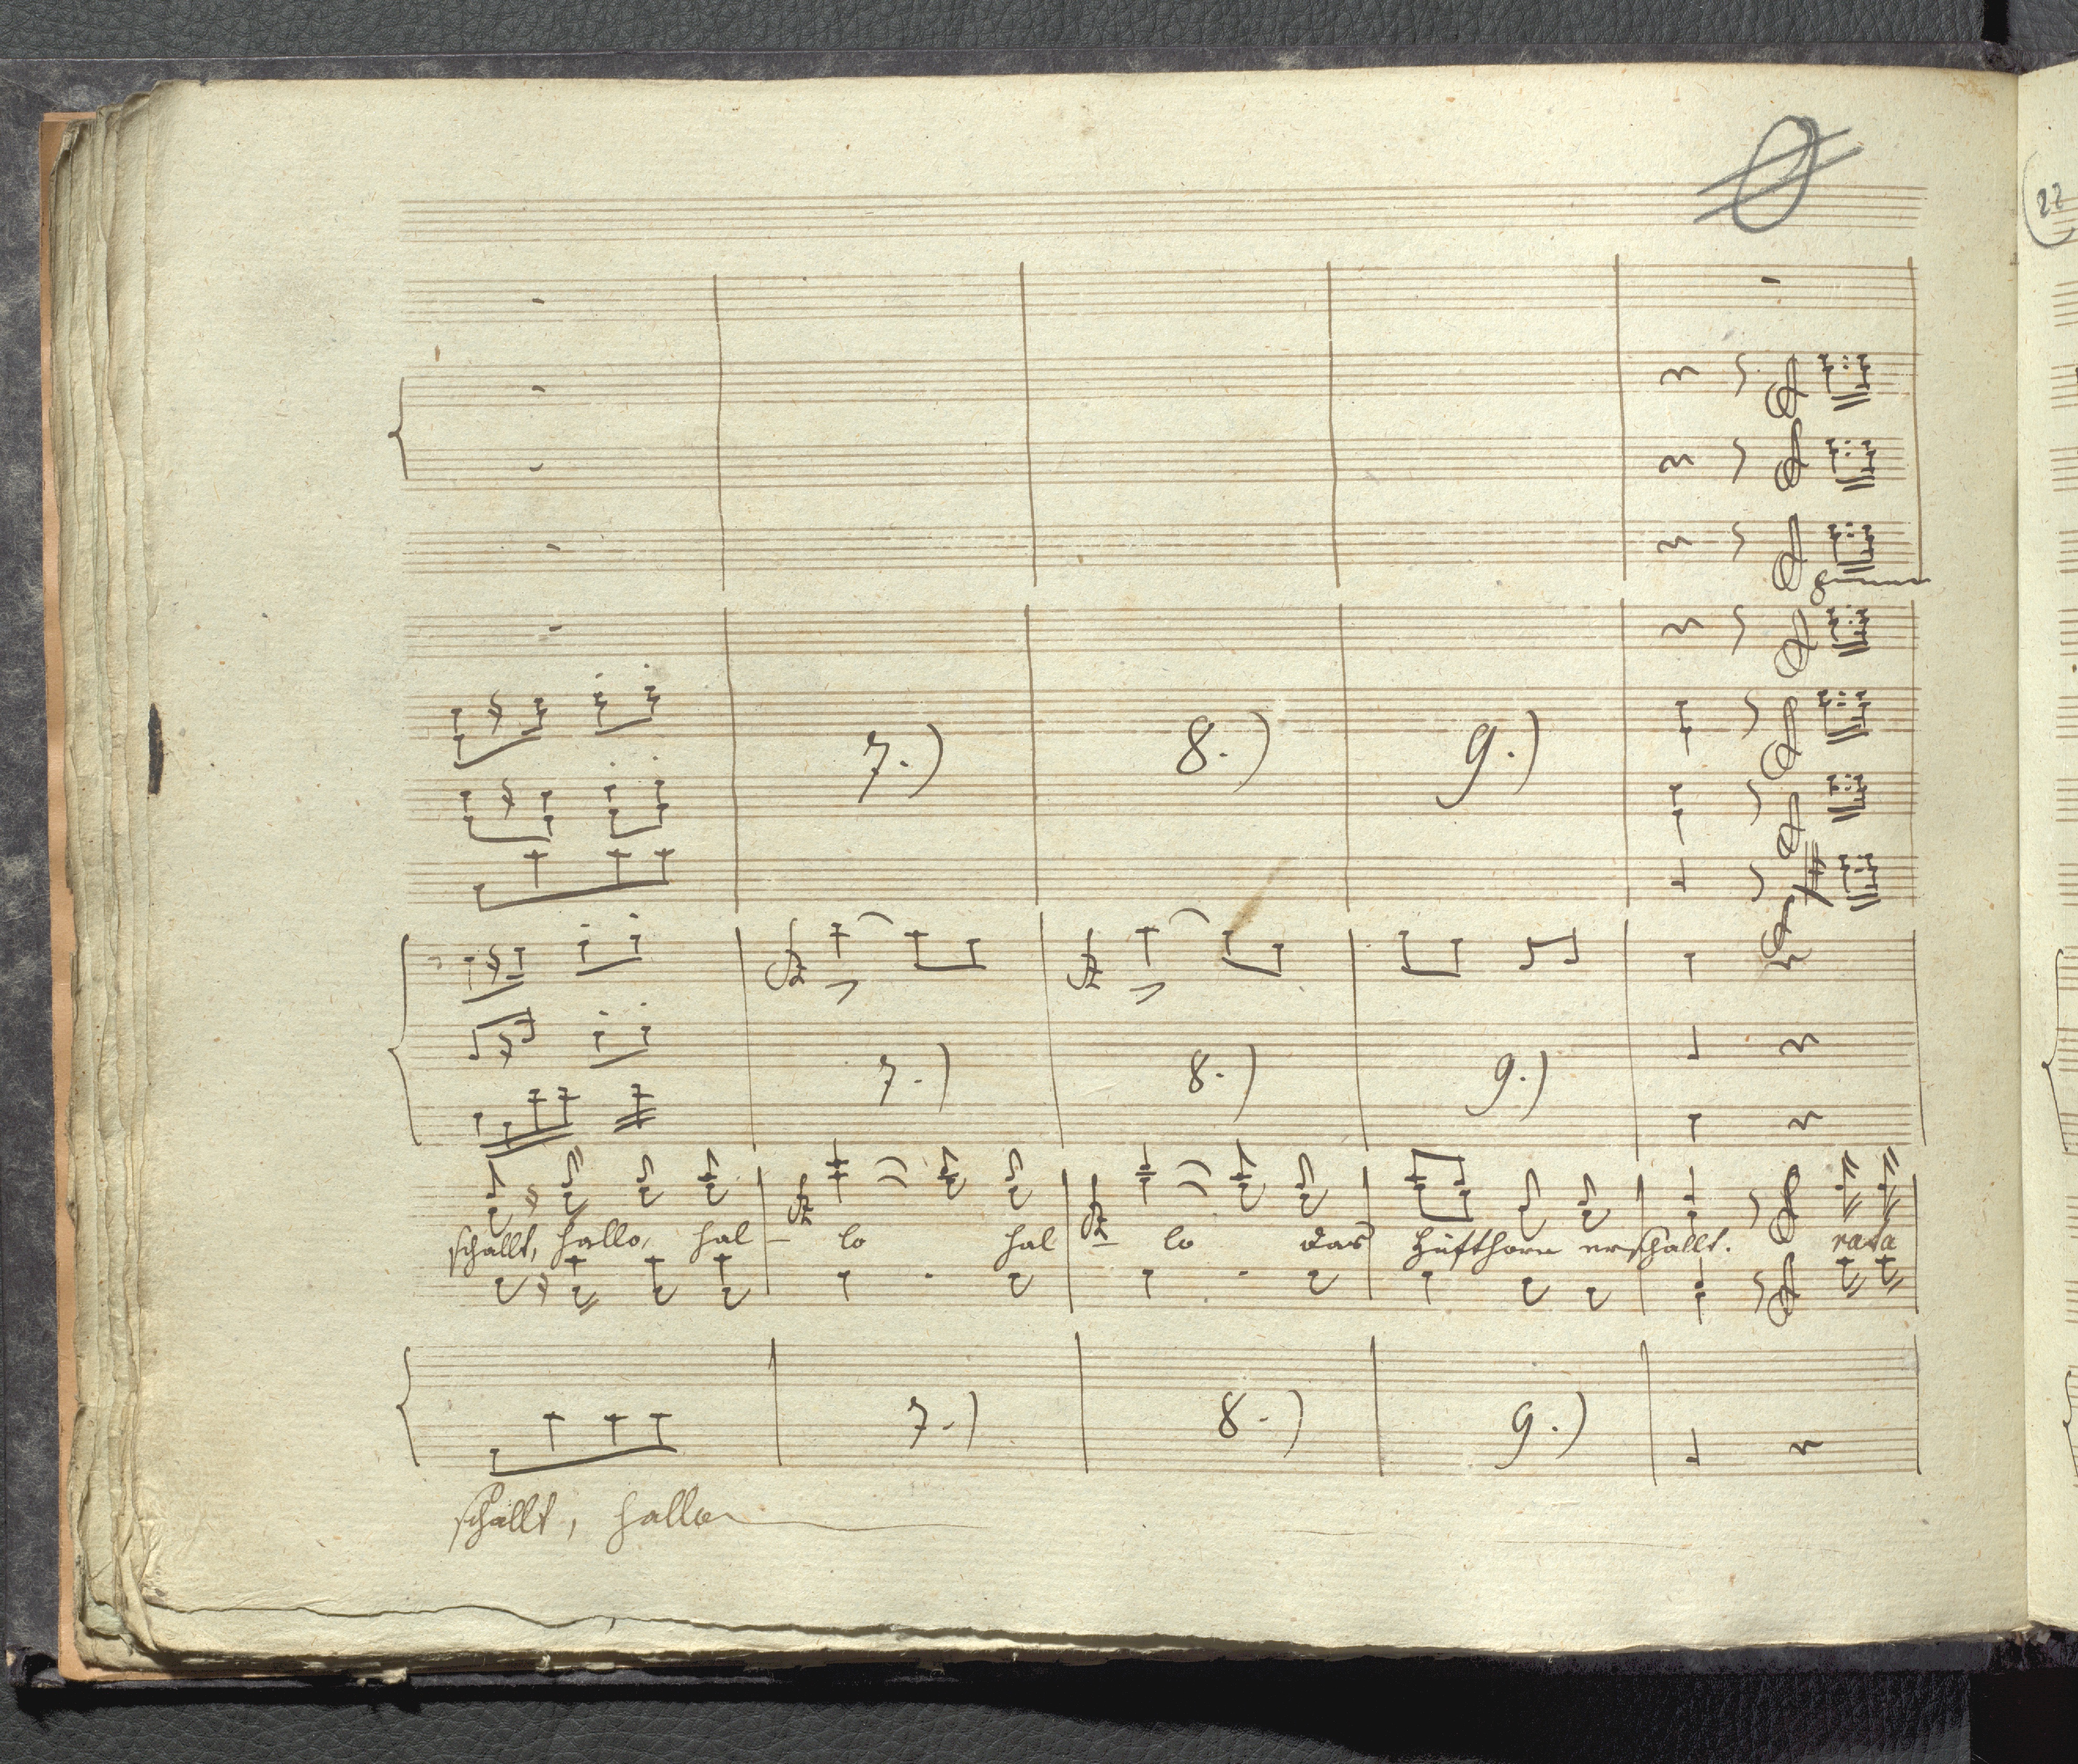 22
7.) 8.) 9.)
7.) 8.) 9.)
schallt, hallo, hal - lo hal - lo das Hüfthorn erschallt. rata
7.) 8.) 9.)
schallt, hallo